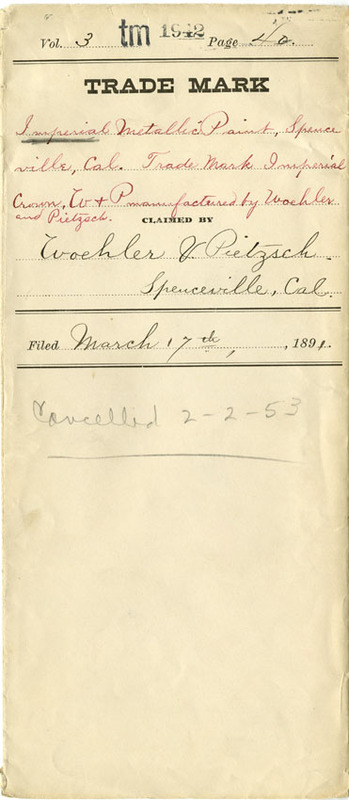 Vol. 3 tm 1942 Page 40
TRADE MARK
Imperial Metallic Paint, Spence
ville, Cal. Trade Mark Imperial
Crown, W & P manufactured by Woehler
and Pietzsch.
CLAIMED BY
Woehler & Pietzsch.
Spenceville, Cal.
Filed March 17th, , 1891.
Cancelled 2-2-53